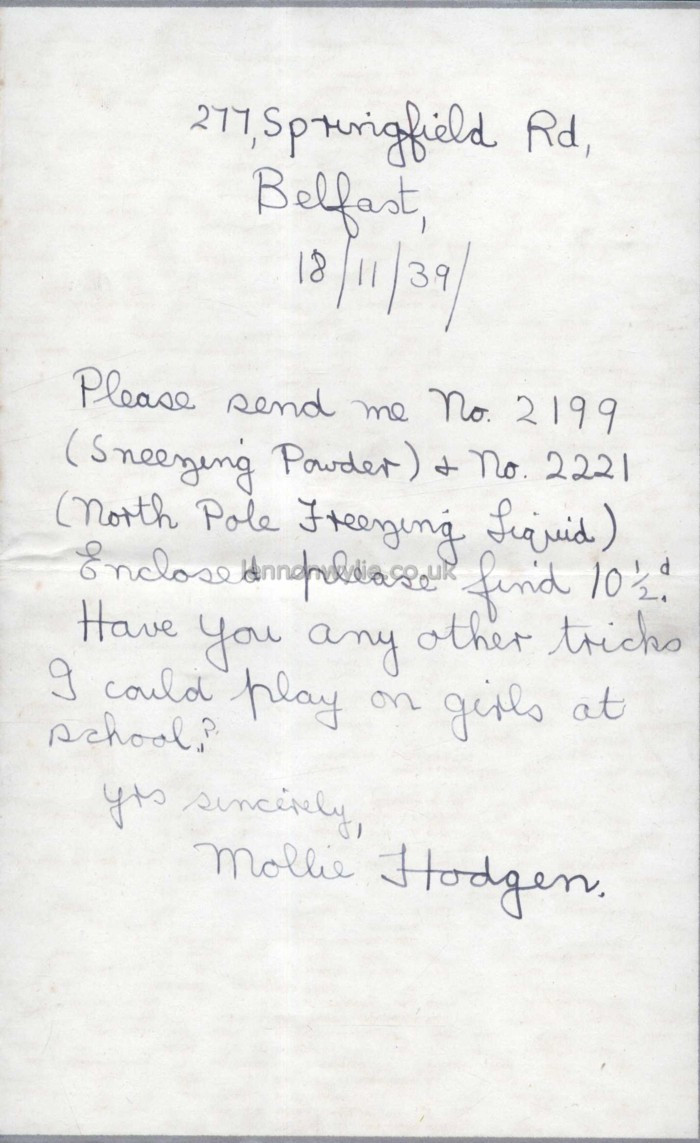 277, Springfield Rd,
Belfast,
18/11/39/
Please send me No. 2199
(Sneezing Powder) & No. 2221
(North Pole Freezing Liquid)
Enclosed please find 10 1/2d.
lennonwylie.co.uk
Have you any other tricks
I could play on girls at
school?
yrs sincerely,
Mollie Hodgen.